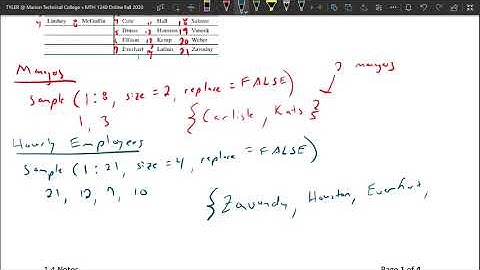 TYLER @ Marion Technical College » MTH 1240 Online Fall 2020
4 Lindsey 8 McGuffin 4 Cote Hall 18 Salazar
Dimas Houston 19 Vanerik
Ellison Kemp 20 Weber
7 Everhart Lathus 21 Zavodny
Mangos
Sample (1:8, size = 2, replace = FALSE)
1, 3
{Carlisle, Kats}
? mangos
Hourly Employees
Sample (1:21, size = 4, replace = FALSE)
21, 12, 7, 10
{Zavondy, Houston, Everhart,
1.4 Notes
Page 1 of 4